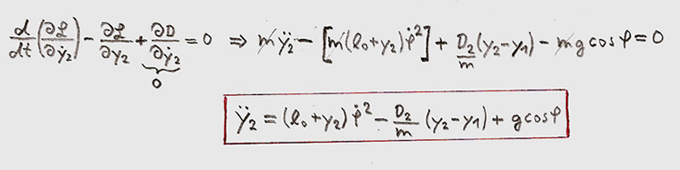 d/dt (∂ℒ/∂ẏ₂) - ∂ℒ/∂y₂ + ∂D/∂ẏ₂ = 0 ⇒ mÿ₂ - [m(l₀+y₂)φ̇²] + D₂/m (y₂-y₁) - mg cosφ = 0
0
ÿ₂ = (l₀+y₂)φ̇² - D₂/m (y₂-y₁) + g cosφ